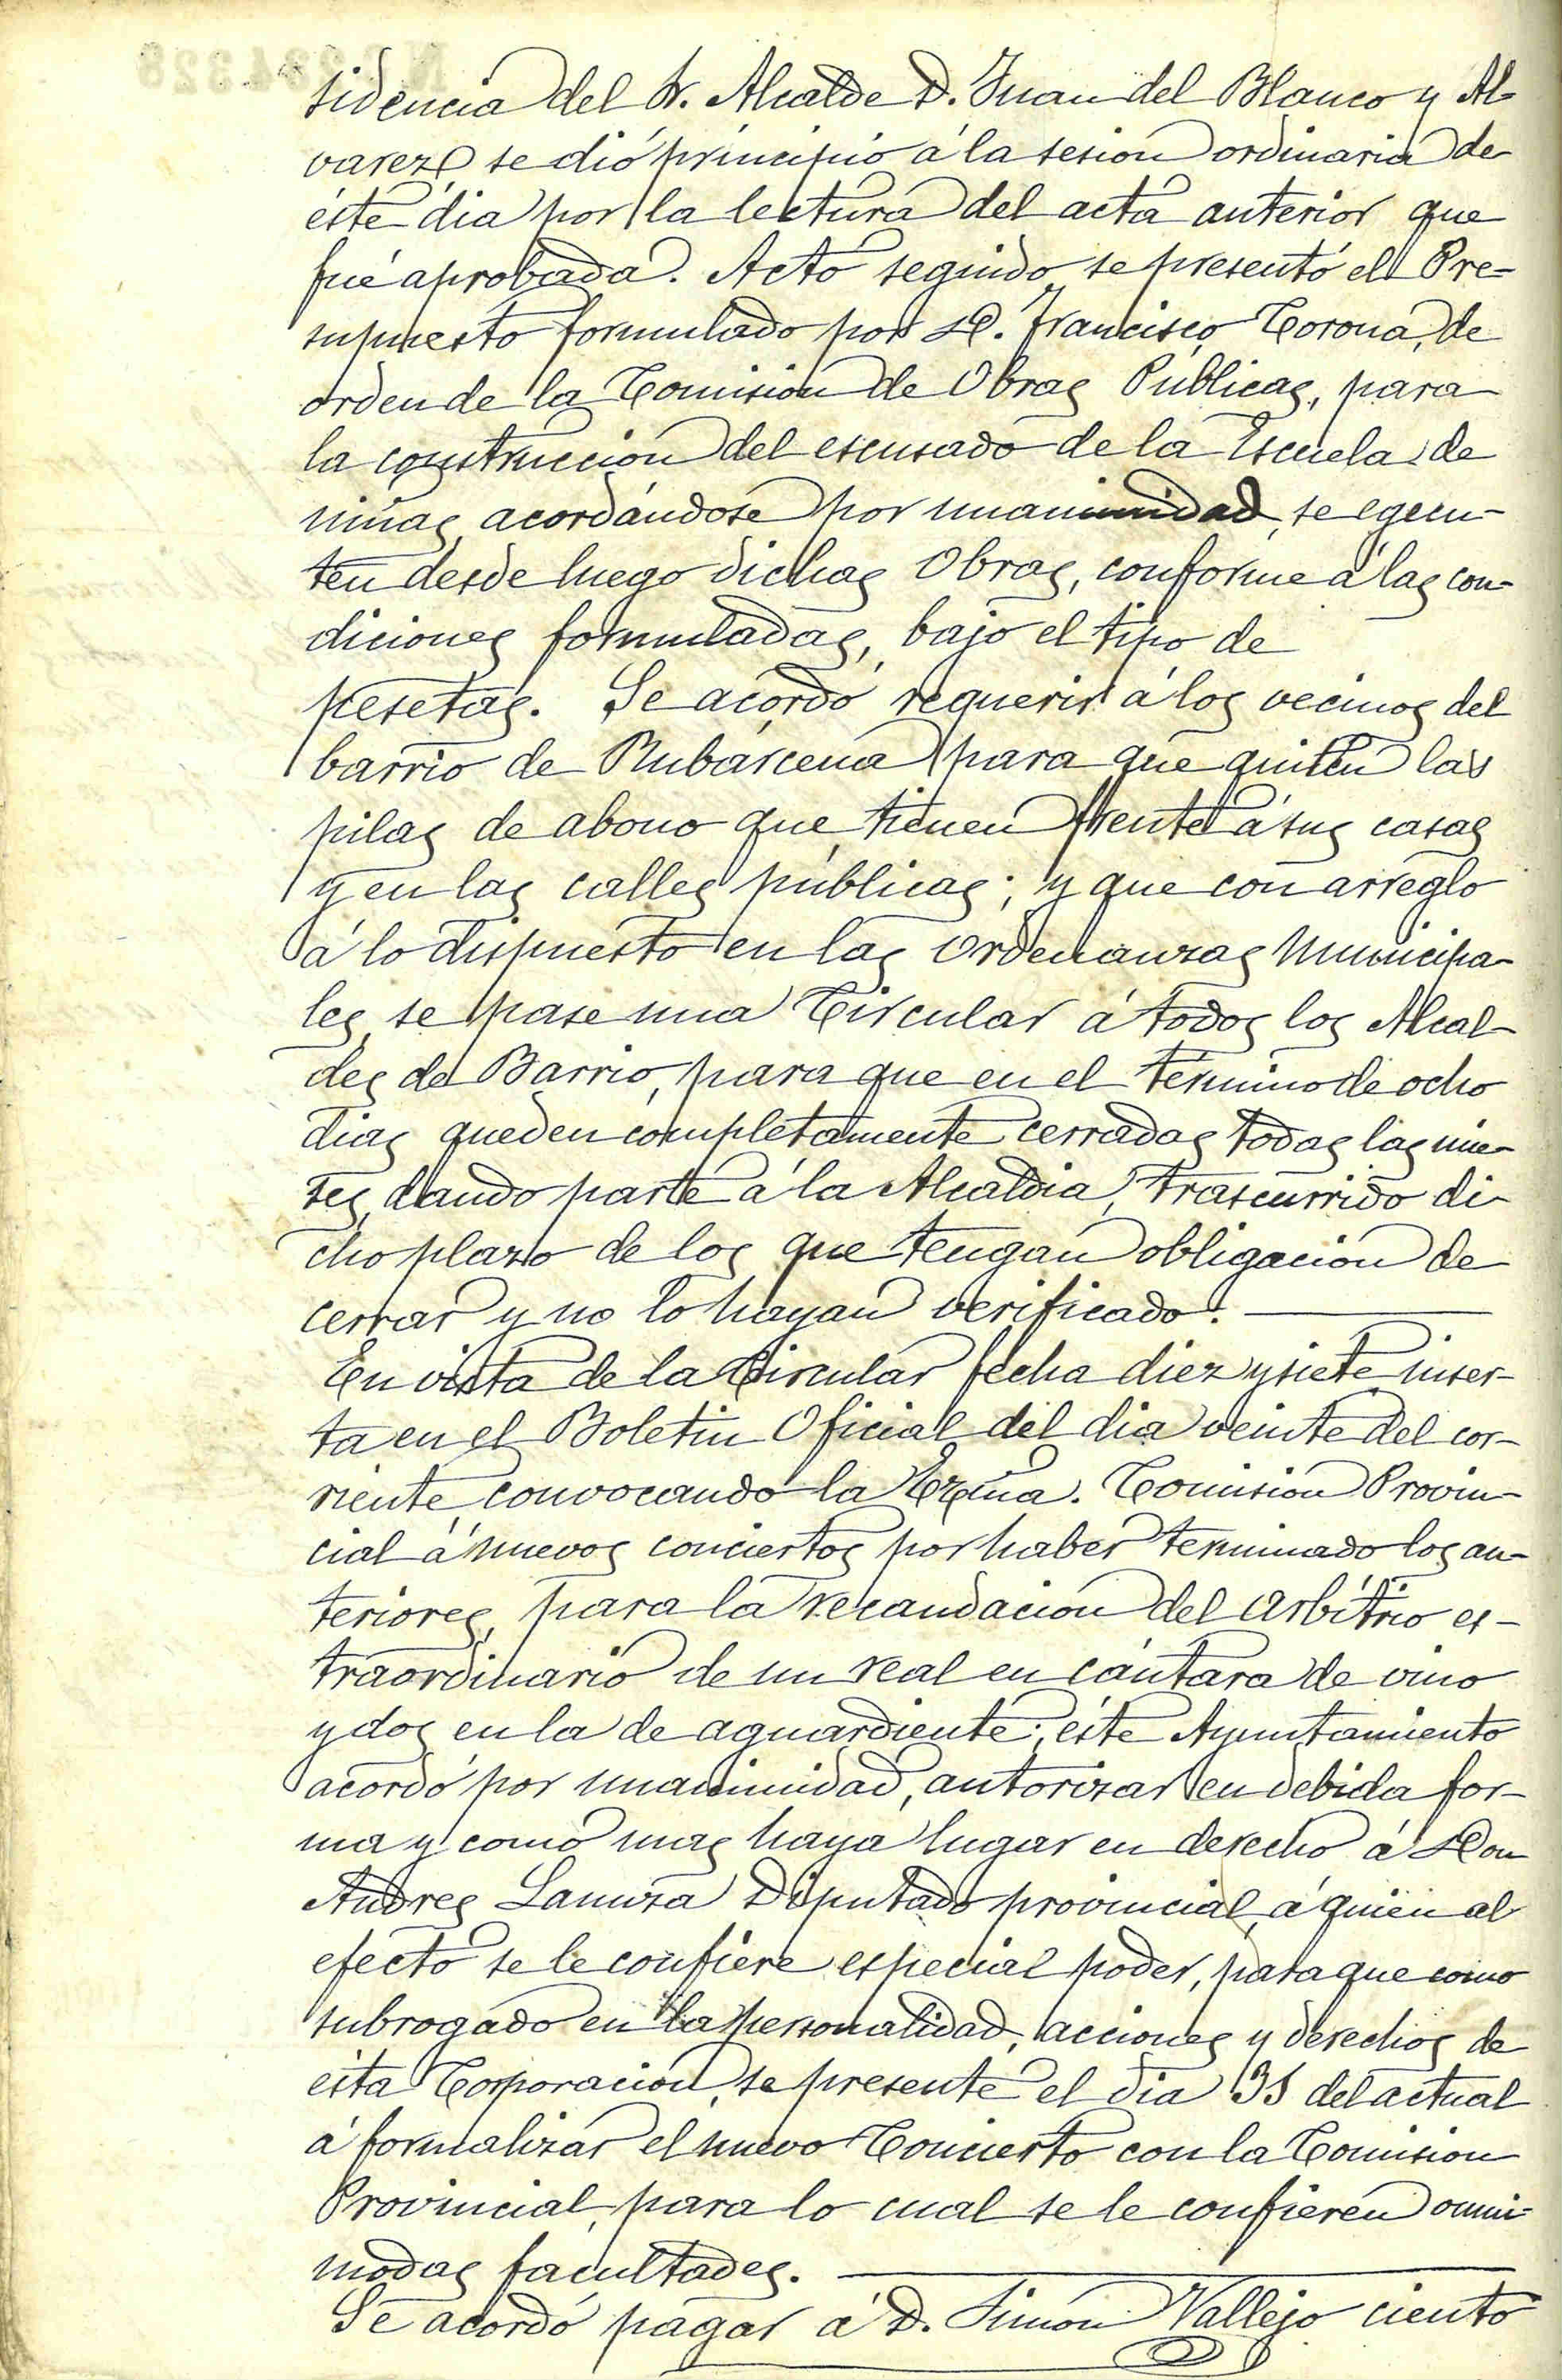 sidencia del Sr. Alcalde D. Juan del Blanco y Al-
varez se dió principio á la sesion ordinaria de
éste dia por la lectura del acta anterior que
fué aprobada. Acto seguido se presentó el Pre-
supuesto formulado por D. Francisco Corona, de
orden de la Comision de Obras Públicas, para
la construccion del escusado de la Escuela de
niñas, acordándose por unanimidad, se egecu-
ten desde luego dichas Obras, conforme á las con-
diciones formuladas, bajo el tipo de
pesetas. Se acordó requerir á los vecinos del
barrio de Rubárcena para que quiten las
pilas de abono que tienen frente á sus casas
y en las calles públicas; y que con arreglo
á lo dispuesto en las Ordenanzas Municipa-
les, se pase una Circular á todos los Alcal-
des de Barrio, para que en el término de ocho
dias queden completamente cerradas todas las mie-
ses, dando parte á la Alcaldia, trascurrido di-
cho plazo de los que tengan obligacion de
cerrar y no lo hayan verificado.
En vista de la Circular fecha diez y siete inser-
ta en el Boletin Oficial del dia veinte del cor-
riente, convocando la Ezma. Comision Provin-
cial á nuevos conciertos por haber terminado los an-
teriores, para la recaudacion del arbitrio es-
traordinario de un real en cántara de vino
y dos en la de aguardiente; éste Ayuntamiento
acordó por unanimidad, autorizar en debida for-
ma y como mas haya lugar en derecho á Don
Andres Lanuza Diputado provincial, á quien al
efecto se le confiere especial poder, para que como
subrogado en la personalidad, acciones y derechos de
ésta Corporacion, se presente el dia 31 del actual
á formalizar el nuevo Concierto con la Comision
Provincial, para lo cual se le confieren omni-
modas facultades.
Se acordó pagar á D. Simón Vallejo ciento